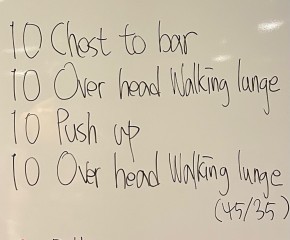 10 Chest to bar
10 Over head Walking lunge
10 Push up
10 Over head Walking lunge
(45/35)